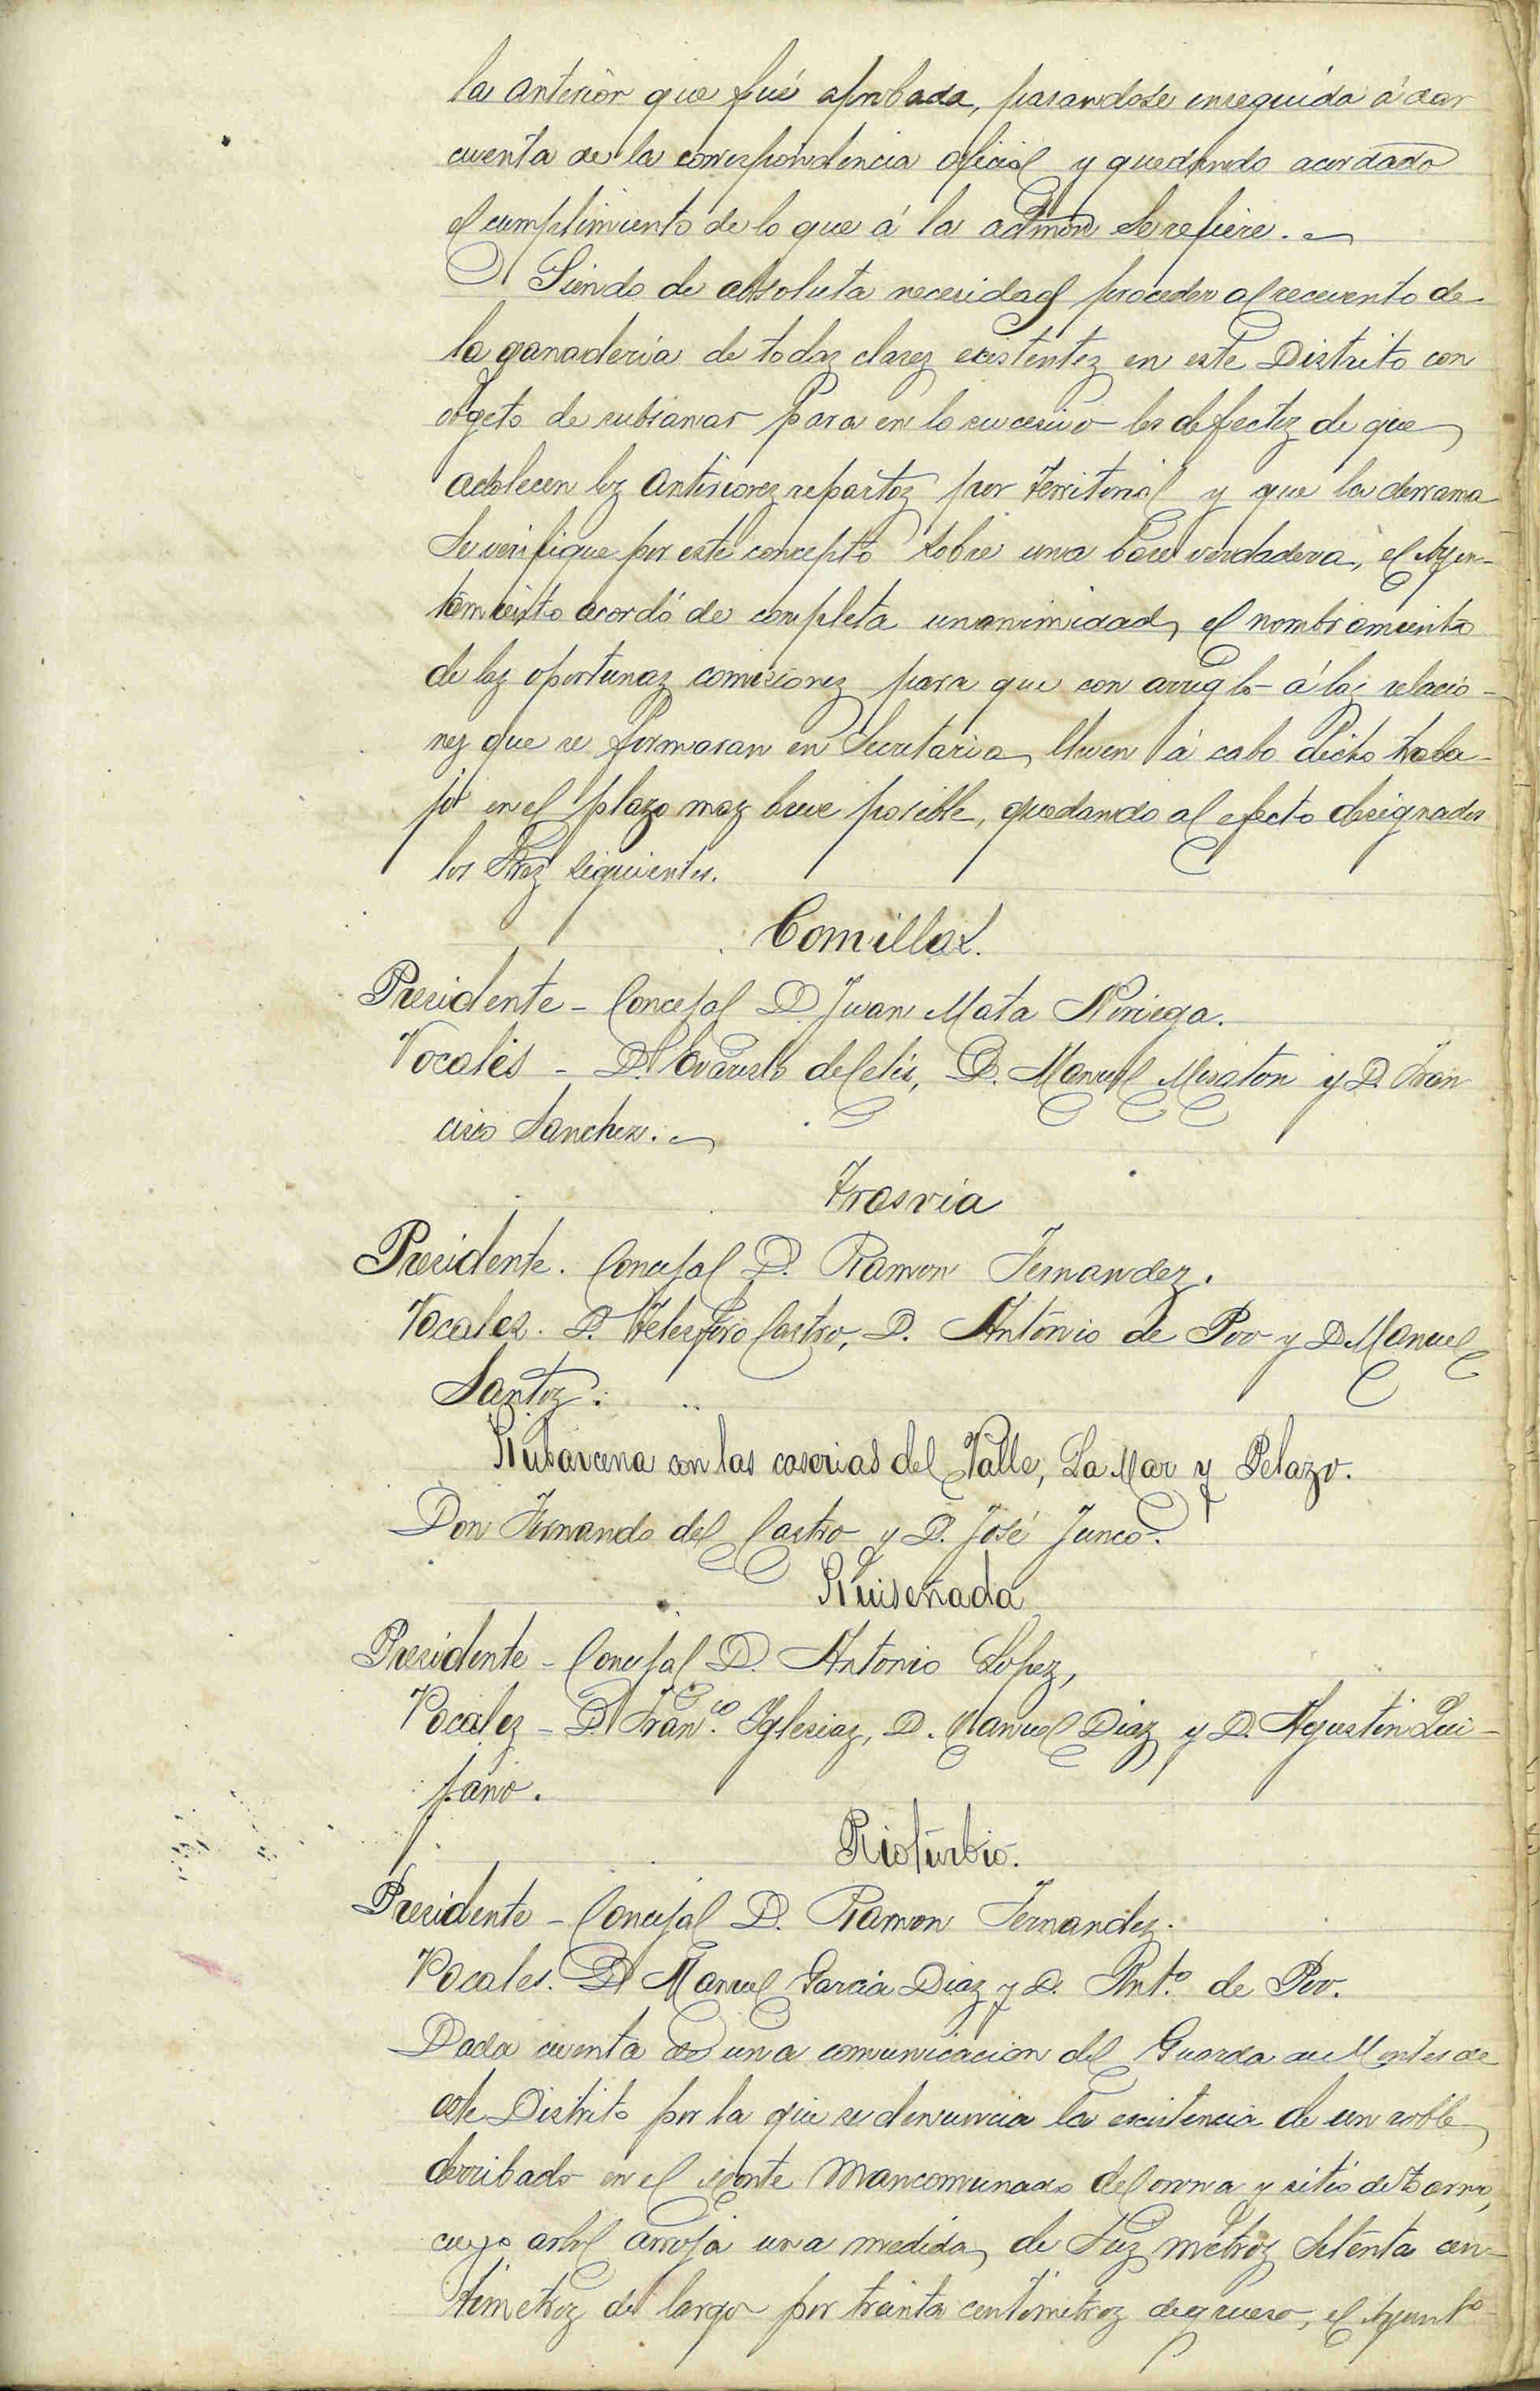 la anterior que fué aprobada, pasandose enseguida á dar
cuenta de la correspondencia oficial y quedando acordado
el cumplimiento de lo que á la admon se refiere.
Siendo de absoluta necesidad proceder al recuento de
la ganaderia de todas clases existentes en este Distrito con
objeto de subsanar para en lo sucesivo los defectos de que
adolecen los anteriores repartos por Territorial y que la derrama
se verifique por este concepto sobre una base verdadera, el Ayun-
tamiento acordó de completa unanimidad, el nombramiento
de las oportunas comisiones para que con arreglo á las relacio-
nes que se formaran en Secretaria, lleven á cabo dicho traba-
jo en el plazo mas breve posible, quedando al efecto designados
los Sres siguientes.
Comillas.
Presidente - Concejal D. Juan Mata Noriega.
Vocales - D. Evaristo de Celis, D. Manuel y D. Fran
cisco Sanchez.
Trasvia
Presidente. Concejal D. Ramon Fernandez.
Vocales. D. Telesforo Castro, D. Antonio de Poo y D Manuel
Santos.
Rubarcena con las caserias del Valle, La Mar y Pelazo.
Don Fernando del Castro y D. José Junco.
Ruiseñada
Presidente - Concejal D. Antonio Lopez,
Vocales - D. Fran.co Yglesias, D. Manuel Diaz y D. Agustin Qui-
jano.
Rioturbio.
Presidente - Concejal D. Ramon Fernandez.
Vocales. D. Manuel Garcia Diaz y D. Ant.o de Poo.
Dada cuenta de una comunicacion del Guarda de Montes de
este Distrito por la que se denuncia la existencia de un roble
derribado en el monte Mancomunado de Corona y sitio de
cuyo arbol arroja una medida, de metros setenta cen-
timetros de largo por treinta centimetros de grueso, el Ayunto